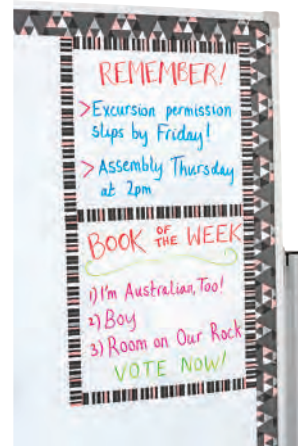 REMEMBER!
>Excursion permission
slips by Friday!
> Assembly Thursday
at 2pm
BOOK OF THE WEEK
1) I'm Australian, Too!
2) Boy
3) Room on Our Rock
VOTE NOW!